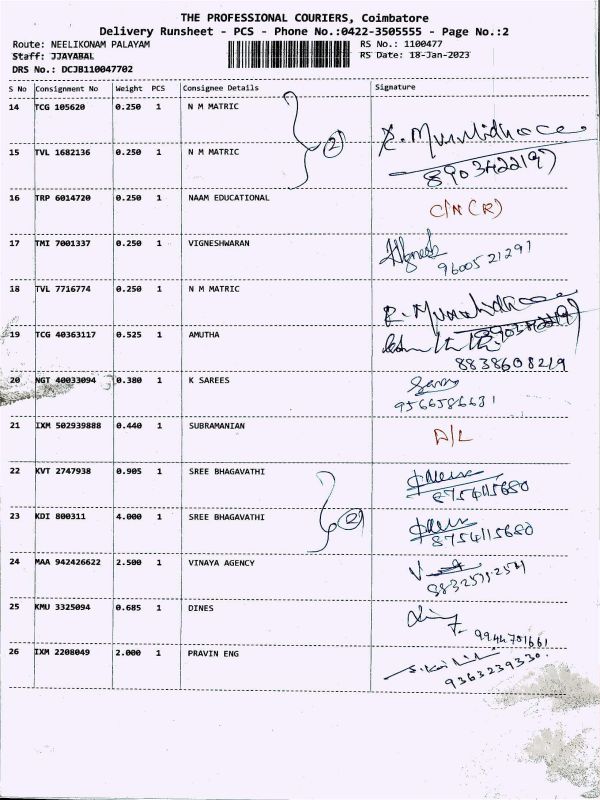 THE PROFESSIONAL COURIERS, Coimbatore
Delivery Runsheet - PCS - Phone No.:0422-3505555 - Page No.:2
Route: NEELIKONAM PALAYAM
RS No.: 1100477
Staff: JJAYABAL
RS Date: 18-Jan-2023
DRS No.: DCJB110047702
S No Consignment No Weight PCS Consignee Details Signature
14 TCG 105620 0.250 1 N M MATRIC
2
15 TVL 1682136 0.250 1 N M MATRIC
8903422197
16 TRP 6014720 0.250 1 NAAM EDUCATIONAL C/N (R)
17 TMI 7001337 0.250 1 VIGNESHWARAN
9600521297
18 TVL 7716774 0.250 1 N M MATRIC
19 TCG 40363117 0.525 1 AMUTHA
8838608219
20 NGT 40033094 0.380 1 K SAREES
9566586631
21 IXM 502939888 0.440 1 SUBRAMANIAN D/L
22 KVT 2747938 0.905 1 SREE BHAGAVATHI
8754115680
23 KDI 800311 4.000 1 SREE BHAGAVATHI
2
8754115680
24 MAA 942426622 2.500 1 VINAYA AGENCY
25 KMU 3325094 0.685 1 DINES
9944751661
26 IXM 2208049 2.000 1 PRAVIN ENG
9363239330